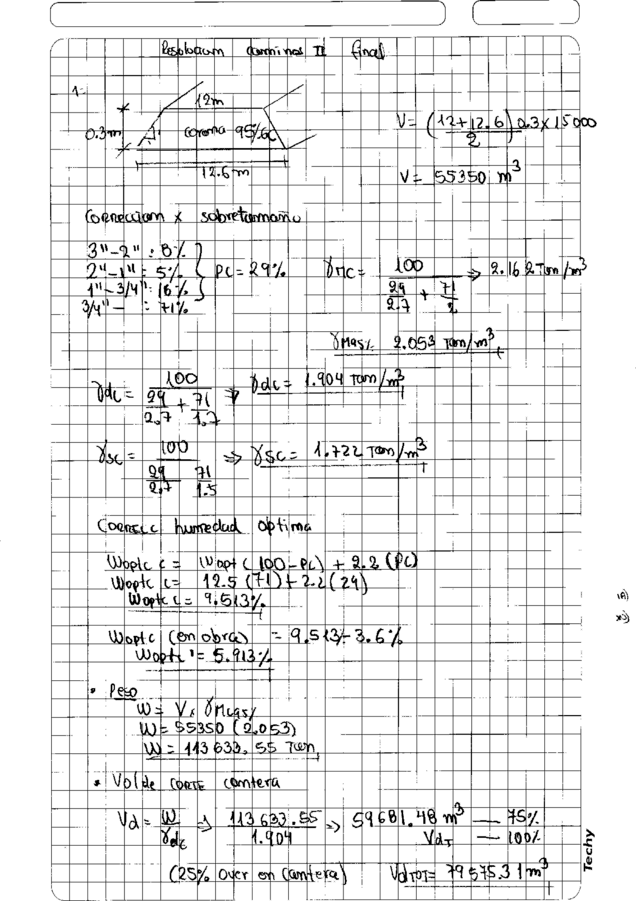 Resolucion caminos II final
1.-
12m
0.3m
corona 95%C
12.6m
V= (12+12.6 / 2) 0.3x15000
V= 55350 m³
Correccion x sobretamaño
3"-2" : 8%
2"-1" : 5%
1"-3/4" : 16%
3/4" - : 71%
PC = 29%
γmc = 100 / (29/2.7 + 71/2) ⇒ 2.162 Ton/m³
γmas% 2.053 Ton/m³
γdc = 100 / (29/2.7 + 71/1.7) ⇒ γdc = 1.904 Ton/m³
γsc = 100 / (29/2.7 71/1.5) ⇒ γsc = 1.722 Ton/m³
Correcc humedad optima
Woptc c = Wopt (100-PC) + 2.2 (PC)
Woptc c = 12.5 (71) + 2.2 (29)
Woptc c = 9.513%
Woptc (en obra) = 9.513 - 3.6%
Woptc' = 5.913%
• Peso
W = V x γmcas%
W = 55350 (2.053)
W = 113633.55 Ton
• Vol de corte cantera
Vd = W/γdc ⇒ 113633.55/1.904 ⇒ 59681.48 m³ — 75%
VdT — 100%
(25% over en cantera) VdTOT = 79575.31 m³
Techy